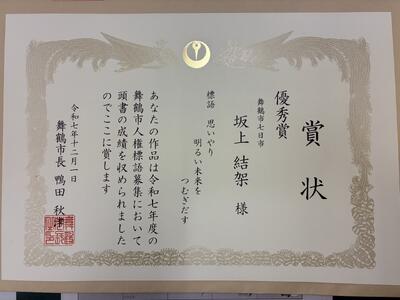 賞状
優秀賞
舞鶴市七日市
坂上 結架 様
標語 思いやり
明るい未来を
つむぎだす
あなたの作品は令和七年度の
舞鶴市人権標語募集において
頭書の成績を収められました
のでここに賞します
令和七年十二月一日
舞鶴市長 鴨田 秋津